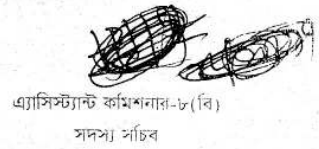 এ্যাসিস্ট্যান্ট কমিশনার-৮(বি)
সদস্য সচিব